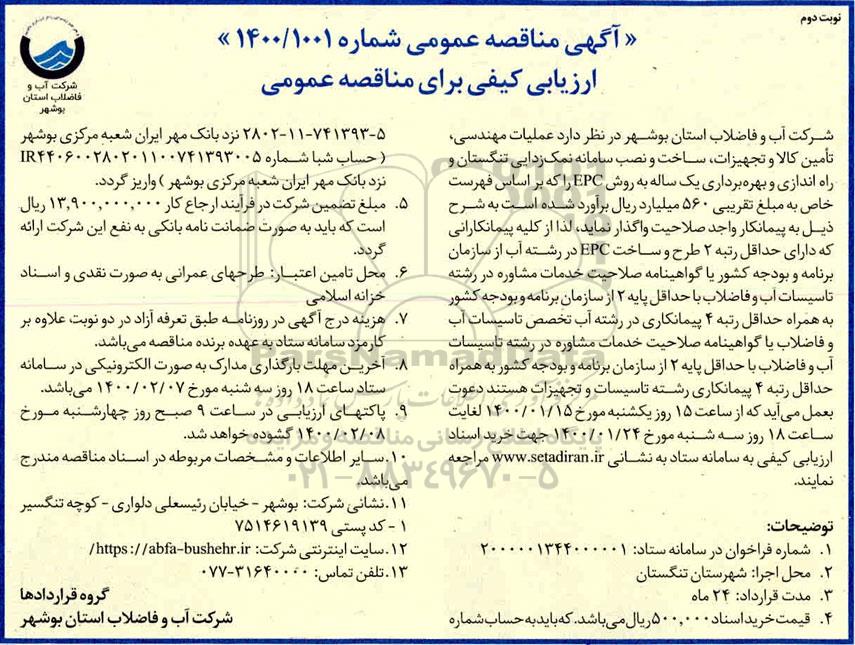 نوبت دوم
« آگهی مناقصه عمومی شماره ۱۴۰۰/۱۰۰۱ »
ارزیابی کیفی برای مناقصه عمومی
شرکت آب و
فاضلاب استان
بوشهر
شرکت آب و فاضلاب استان بوشهر در نظر دارد عملیات مهندسی،
تأمین کالا و تجهیزات، ساخت و نصب سامانه نمک‌زدایی تنگستان و
راه اندازی و بهره‌برداری یک ساله به روش EPC را که بر اساس فهرست
خاص به مبلغ تقریبی ۵۶۰ میلیارد ریال برآورد شده است به شرح
ذیل به پیمانکار واجد صلاحیت واگذار نماید، لذا از کلیه پیمانکارانی
که دارای حداقل رتبه ۲ طرح و ساخت EPC در رشته آب از سازمان
برنامه و بودجه کشور یا گواهینامه صلاحیت خدمات مشاوره در رشته
تاسیسات آب و فاضلاب با حداقل پایه ۲ از سازمان برنامه و بودجه کشور
به همراه حداقل رتبه ۴ پیمانکاری در رشته آب تخصص تاسیسات آب
و فاضلاب یا گواهینامه صلاحیت خدمات مشاوره در رشته تاسیسات
آب و فاضلاب با حداقل پایه ۲ از سازمان برنامه و بودجه کشور به همراه
حداقل رتبه ۴ پیمانکاری رشته تاسیسات و تجهیزات هستند دعوت
بعمل می‌آید که از ساعت ۱۵ روز یکشنبه مورخ ۱۴۰۰/۰۱/۱۵ لغایت
ساعت ۱۸ روز سه شنبه مورخ ۱۴۰۰/۰۱/۲۴ جهت خرید اسناد
ارزیابی کیفی به سامانه ستاد به نشانی www.setadiran.ir مراجعه
نمایند.
توضیحات:
۱. شماره فراخوان در سامانه ستاد: ۲۰۰۰۰۰۱۳۴۴۰۰۰۰۰۱
۲. محل اجرا: شهرستان تنگستان
۳. مدت قرارداد: ۲۴ ماه
۴. قیمت خرید اسناد ۵۰۰,۰۰۰ ریال می‌باشد. که باید به حساب شماره
۲۸۰۲-۱۱-۷۴۱۳۹۳-۵ نزد بانک مهر ایران شعبه مرکزی بوشهر
( حساب شبا شماره IR۴۴۰۶۰۰۲۸۰۲۰۱۱۰۰۷۴۱۳۹۳۰۰۵
نزد بانک مهر ایران شعبه مرکزی بوشهر ) واریز گردد.
۵. مبلغ تضمین شرکت در فرآیند ارجاع کار ۱۳,۹۰۰,۰۰۰,۰۰۰ ریال
است که باید به صورت ضمانت نامه بانکی به نفع این شرکت ارائه
گردد.
۶. محل تامین اعتبار: طرحهای عمرانی به صورت نقدی و اسناد
خزانه اسلامی
۷. هزینه درج آگهی در روزنامه طبق تعرفه آزاد در دو نوبت علاوه بر
کارمزد سامانه ستاد به عهده برنده مناقصه می‌باشد.
۸. آخرین مهلت بارگذاری مدارک به صورت الکترونیکی در سامانه
ستاد ساعت ۱۸ روز سه شنبه مورخ ۱۴۰۰/۰۲/۰۷ می‌باشد.
۹. پاکتهای ارزیابی در ساعت ۹ صبح روز چهارشنبه مورخ
۱۴۰۰/۰۲/۰۸ گشوده خواهد شد.
۱۰. سایر اطلاعات و مشخصات مربوطه در اسناد مناقصه مندرج
می‌باشد
۱۱. نشانی شرکت: بوشهر - خیابان رئیسعلی دلواری - کوچه تنگسیر
۱ - کد پستی ۷۵۱۴۶۱۹۱۳۹
۱۲. سایت اینترنتی شرکت: https://abfa-bushehr.ir/
۱۳. تلفن تماس: ۰۷۷-۳۱۶۴۰۰۰۰
گروه قراردادها
شرکت آب و فاضلاب استان بوشهر
ParsNamadData
۰۲۱-۸۸۳۴۹۶۷۰-۵